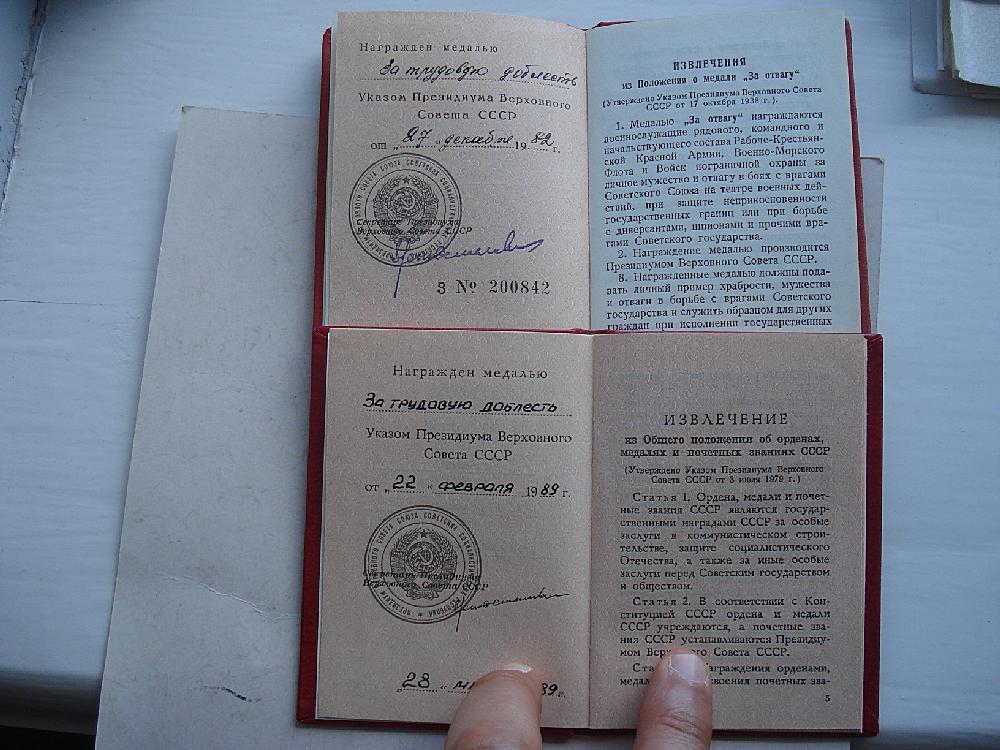 Награжден медалью
За трудовую доблесть
Указом Президиума Верховного
Совета СССР
от „27" декабря 1982 г.
Секретарь Президиума
Верховного Совета СССР
З № 200842
ИЗВЛЕЧЕНИЯ
из Положения о медали „За отвагу"
(Утверждено Указом Президиума Верховного Совета
СССР от 17 октября 1938 г.).
1. Медалью „За отвагу" награждаются
военнослужащие рядового, командного и
начальствующего состава Рабоче-Крестьян-
ской Красной Армии, Военно-Морского
Флота и Войск пограничной охраны за
личное мужество и отвагу в боях с врагами
Советского Союза на театре военных дей-
ствий, при защите неприкосновенности
государственных границ или при борьбе
с диверсантами, шпионами и прочими вра-
гами Советского государства.
2. Награждение медалью производится
Президиумом Верховного Совета СССР.
8. Награжденные медалью должны пода-
вать личный пример храбрости, мужества
и отваги в борьбе с врагами Советского
государства и служить образцом для других
граждан при исполнении государственных
Награжден медалью
За трудовую доблесть
Указом Президиума Верховного
Совета СССР
от „22" февраля 1989 г.
Секретарь Президиума
Верховного Совета СССР
„28" 89 г.
ИЗВЛЕЧЕНИЕ
из Общего положения об орденах,
медалях и почетных званиях СССР
(Утверждено Указом Президиума Верховного
Совета СССР от 3 июля 1979 г.)
Статья 1. Ордена, медали и почет-
ные звания СССР являются государ-
ственными наградами СССР за особые
заслуги в коммунистическом строи-
тельстве, защите социалистического
Отечества, а также за иные особые
заслуги перед Советским государством
и обществом.
Статья 2. В соответствии с Кон-
ституцией СССР ордена и медали
СССР учреждаются, а почетные зва-
ния СССР устанавливаются Президиу-
мом Верховного Совета СССР.
награждения орденами,
почетных зва-
5